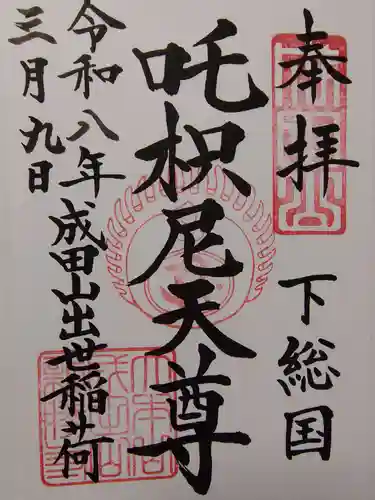 奉拝
下総国
吒枳尼天尊
令和八年
三月九日
成田山出世稲荷